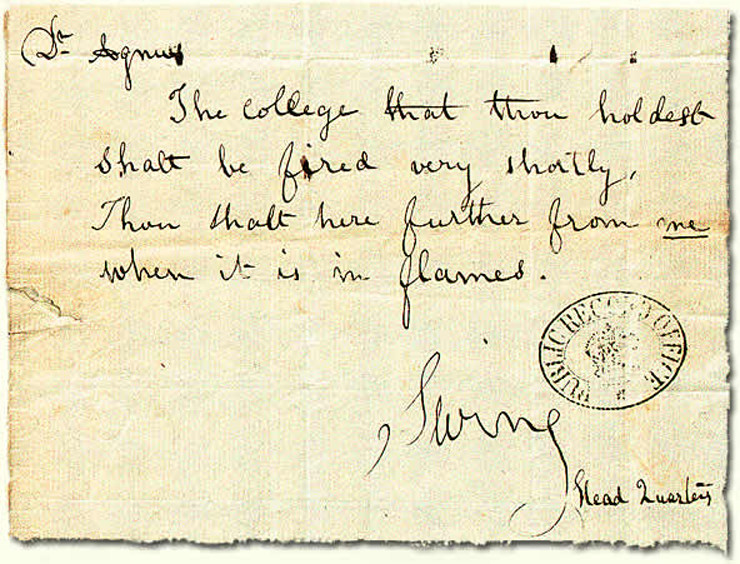 Dr
The College that thou holdest
shalt be fired very shortly,
Thou shalt here further from me
when it is in flames.
PUBLIC RECORD OFFICE
Swing
Head Quarters